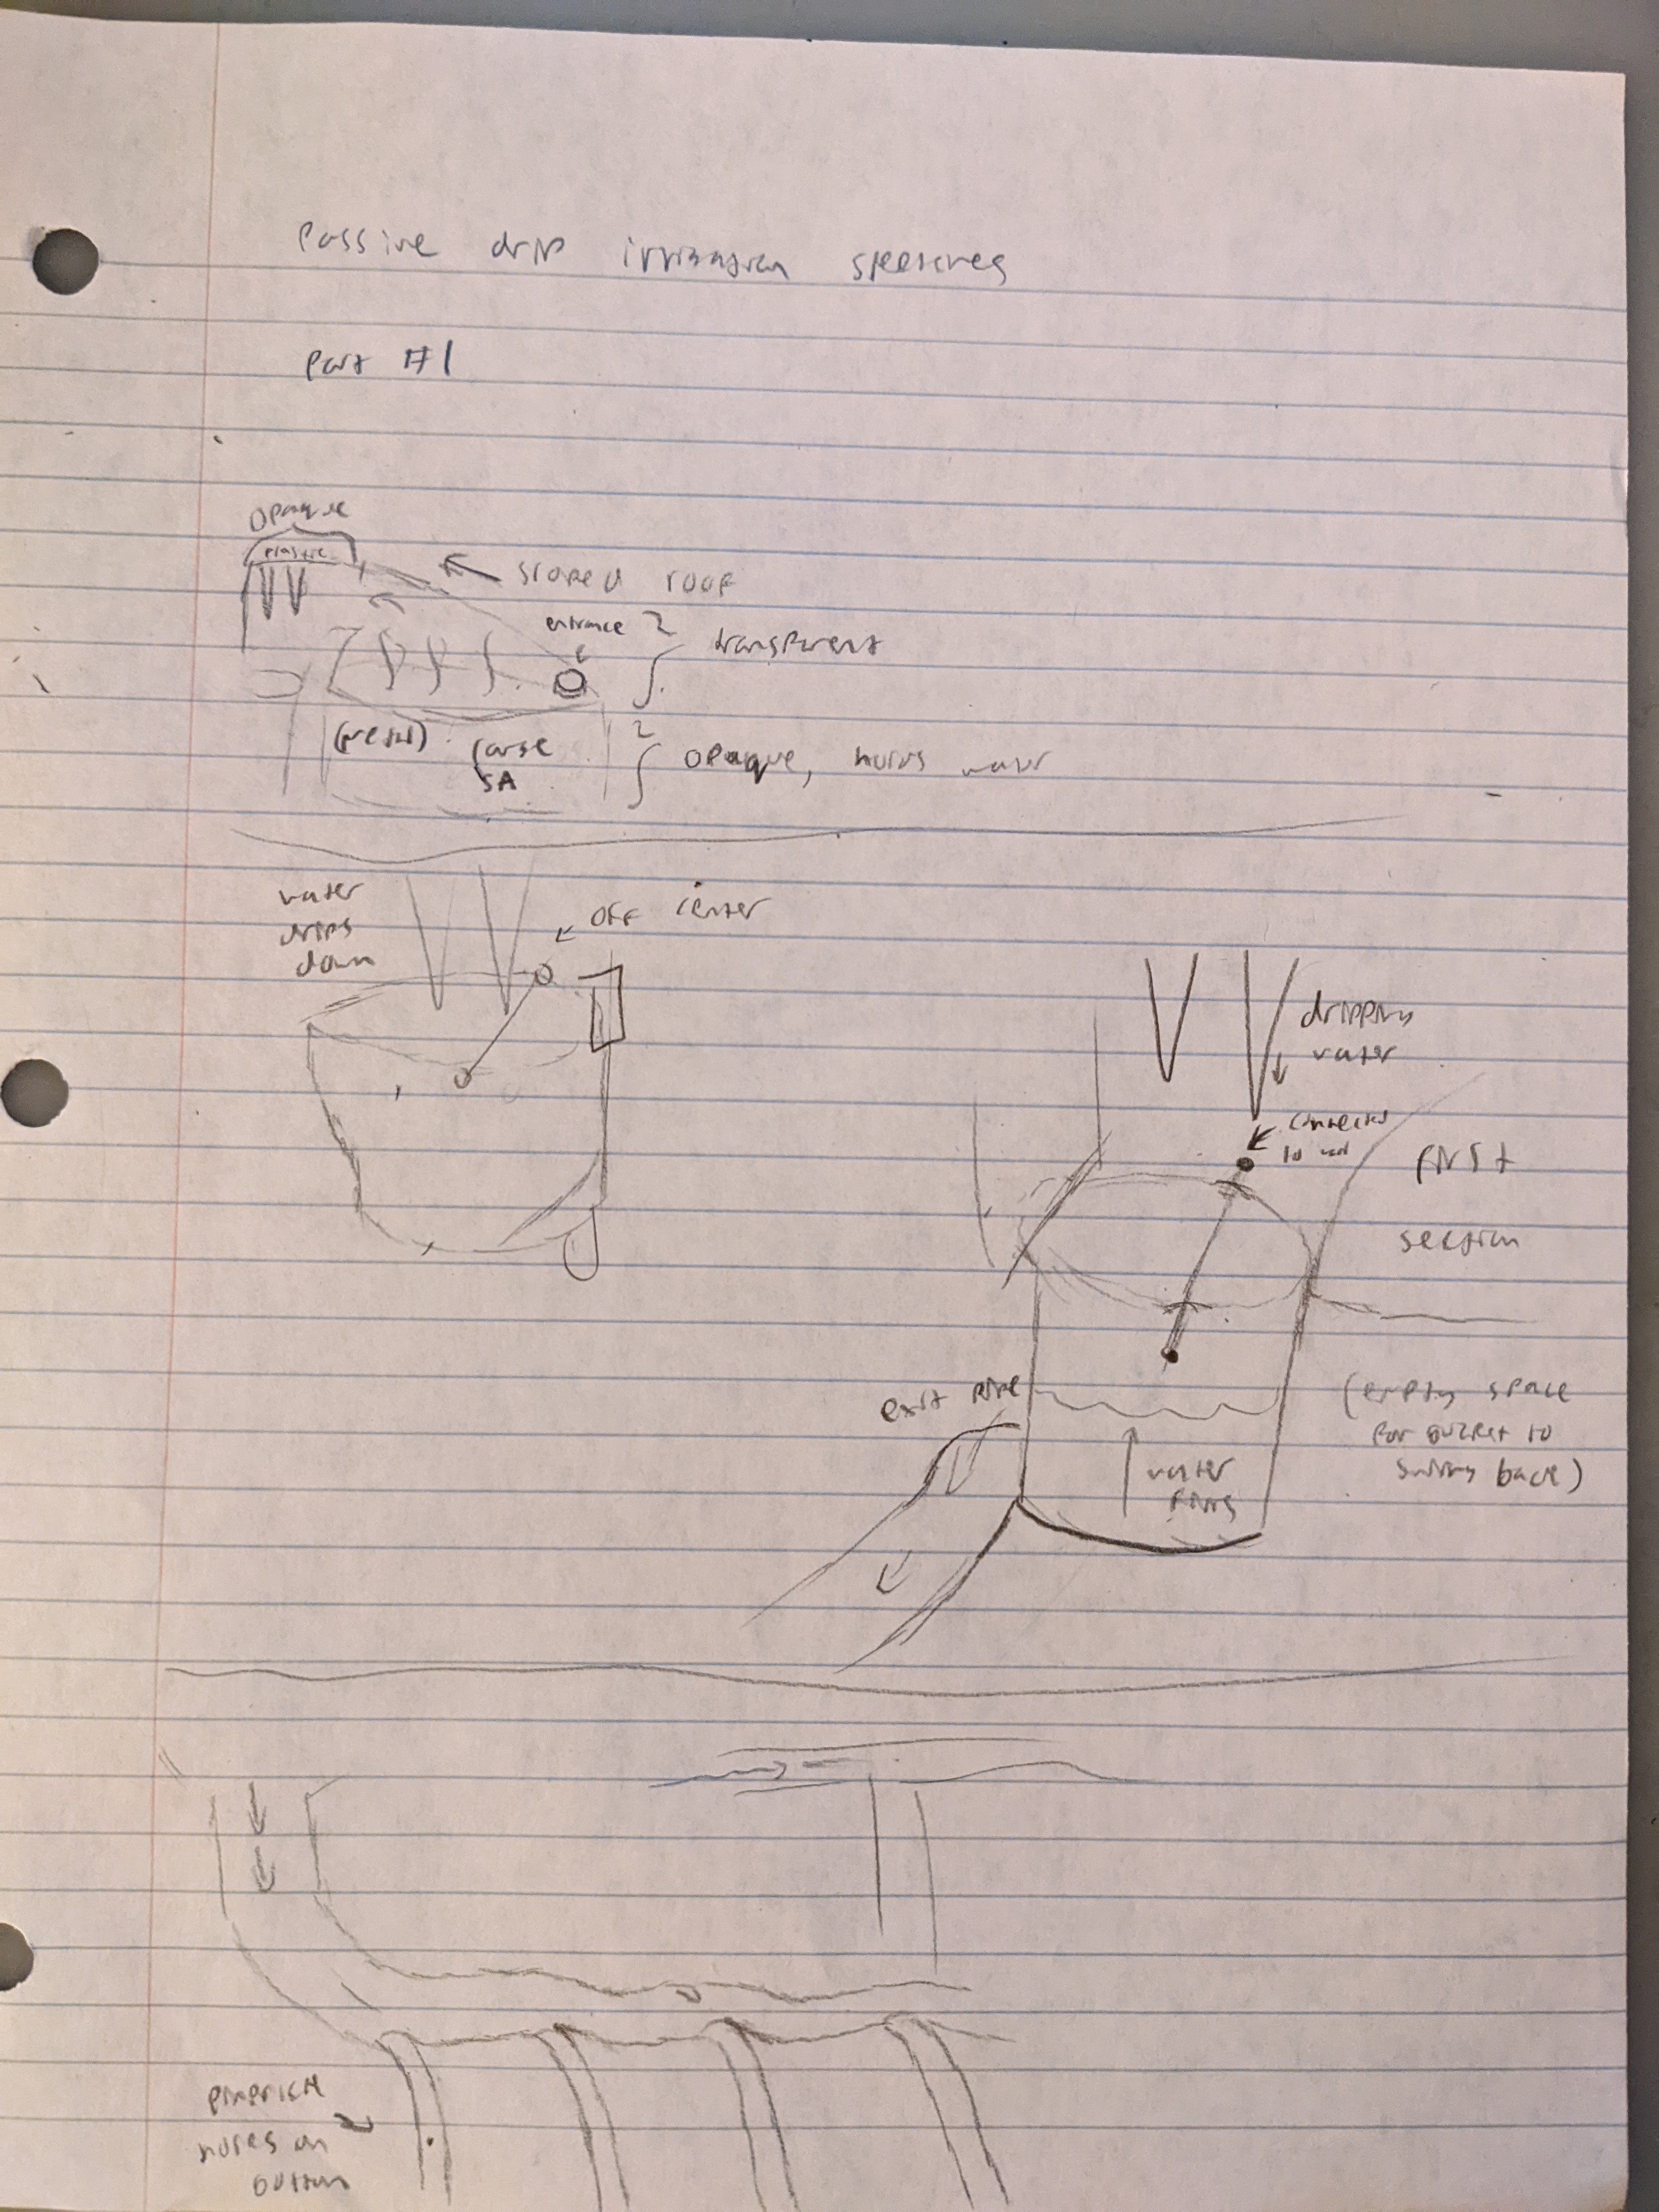 Passive drip irrigation sketches
Part #1
Opaque
plastic
sloped roof
entrance
transparent
(metal)
large
SA
opaque, holds water
water
drips
down
off center
dripping
water
connected
to rod
first
section
exit pipe
(empty space
for bucket to
swing back)
water
fills
pinprick
holes on
bottom